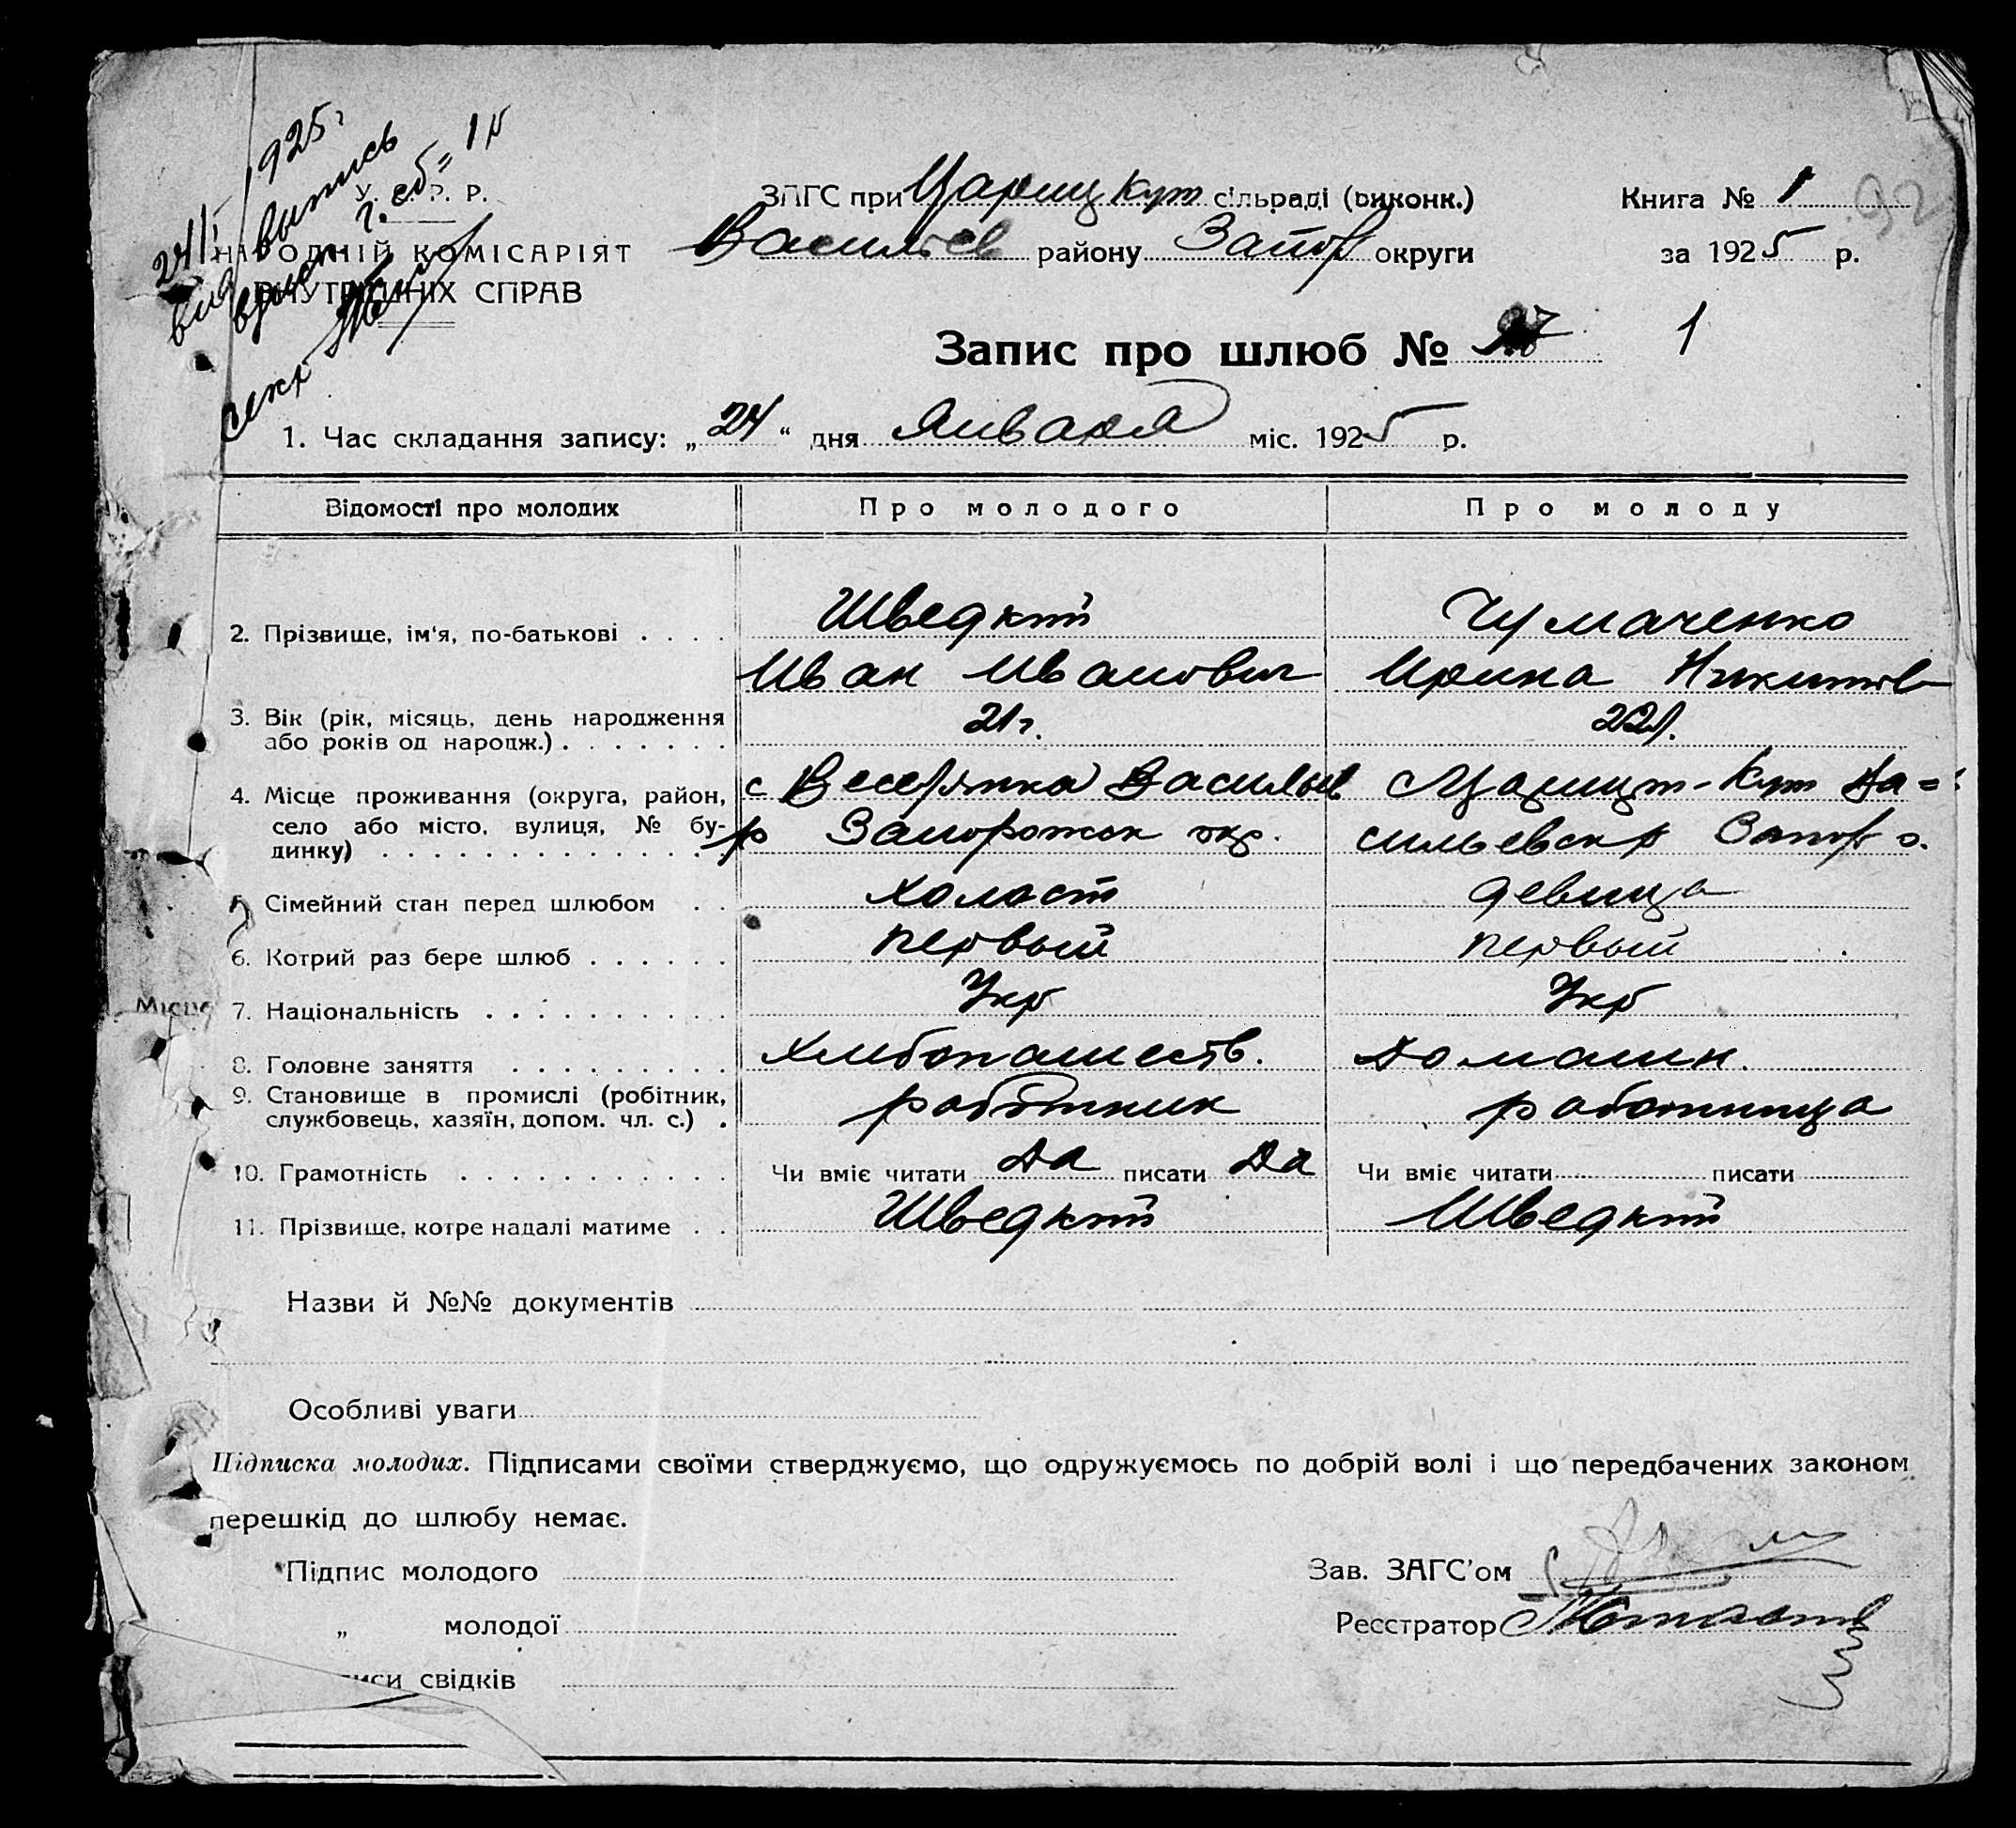 24/I 925г
выпись
1р
У. С. Р. Р.
НАРОДНІЙ КОМІСАРІЯТ
ВНУТРІШНІХ СПРАВ
ЗАГС при Цариц Кут сільраді (виконк.)
Васильев району Запор округи
Книга № 1
за 1925 р.
92
Запис про шлюб №
1
1. Час складання запису: „24“ дня Января міс. 1925 р.
Відомості про молодих Про молодого Про молоду
2. Прізвище, ім'я, по-батькові . . . . Шведкий Чумаченко
Иван Иванович Ирина Никитов
3. Вік (рік, місяць, день народження 21 г. 22 г.
або років од народж.) . . . . . . .
4. Місце проживання (округа, район, с Веселянка Васильев Царицын-Кут Ва=
село або місто, вулиця, № бу- р Запорожск окр. сильевск р Запор о.
динку) . . . . . . . . . . . . . .
5. Сімейний стан перед шлюбом . . холост девица
6. Котрий раз бере шлюб . . . . . . первый первый
Місце
7. Національність . . . . . . . . . . Укр Укр
8. Головне заняття . . . . . . . . . хлибопашеств. домашн.
9. Становище в промислі (робітник, работник работница
службовець, хазяїн, допом. чл. с.) .
10. Грамотність . . . . . . . . . . . Чи вміє читати да писати да Чи вміє читати писати
11. Прізвище, котре надалі матиме . . Шведкий Шведкий
Назви й №№ документів
Особливі уваги
Підписка молодих. Підписами своїми стверджуємо, що одружуємось по добрій волі і що передбачених законом
перешкід до шлюбу немає.
Підпис молодого Зав. ЗАГС'ом
„ молодої Реєстратор
писи свідків